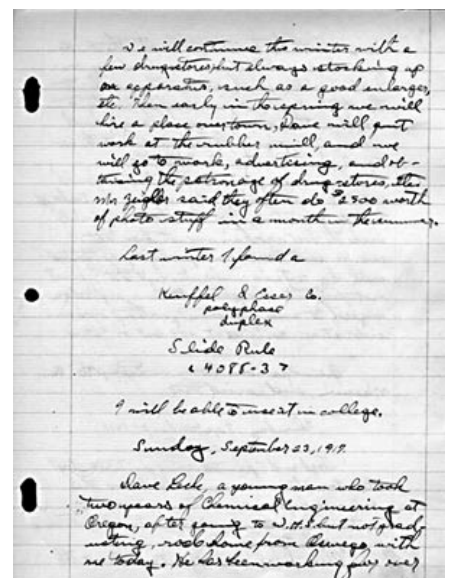 We will continue this winter with a
few drugstores, but always stocking up
on apparatus, such as a good enlarger,
etc. Then early in the spring we will
hire a place over town, Dave will quit
work at the rubber mill, and we
will go to work, advertising, and ob-
taining the patronage of drug stores, etc.
Mr. Zeigler said they often do $2500 worth
of photo stuff in a month in the summer.
Last winter I found a
Keuffel & Esser Co.
polyphase
duplex
Slide Rule
< 4088-3 >
I will be able to use it in college.
Sunday, September 23, 1917.
Dave a young man who took
two years of Chemical Engineering at
Oregon, after going to W.H.S. but not grad-
uating, rode home from Oswego with
me today. He has been working over